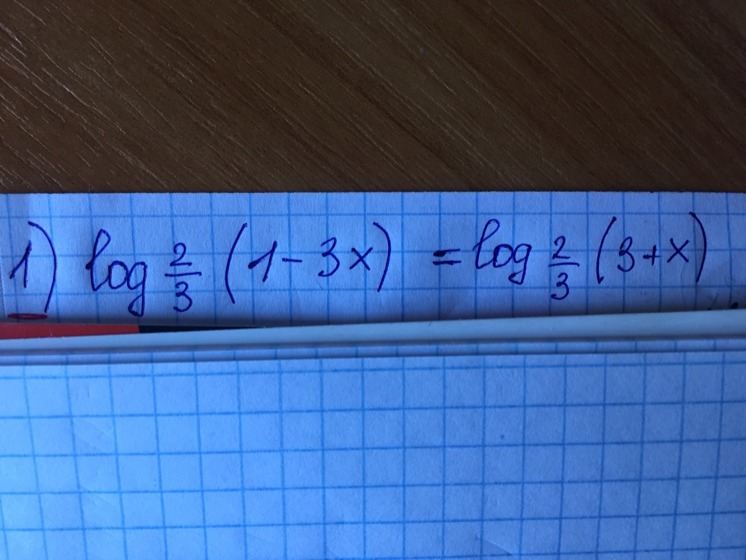 1) log 2/3 (1-3x) = log 2/3 (3+x)